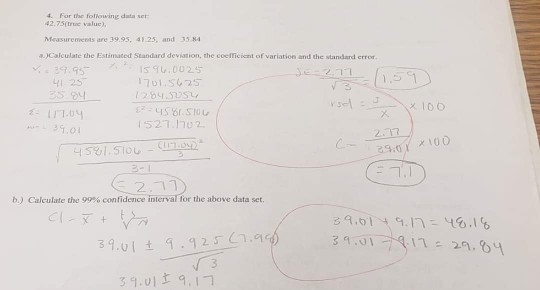 4. For the following data set:
42.75(true value),
Measurements are 39.95, 41.25, and 35.84
a.)Calculate the Estimated Standard deviation, the coefficient of variation and the standard error.
39.95 1596.0025
41.25 1701.5625
35.84 1284.5056
117.04 4581.5106
39.01 1527.1702
4581.5106 - (117.04)²
3
3-1
= 2.77
2.77
√3
1.59
x 100
2.77
39.01 x100
= 7.1
b.) Calculate the 99% confidence interval for the above data set.
CI = x̄ ±
39.01 ± 9.925
√3
39.01 ± 9.17
39.01 + 9.17 = 48.18
39.01 - 9.17 = 29.84